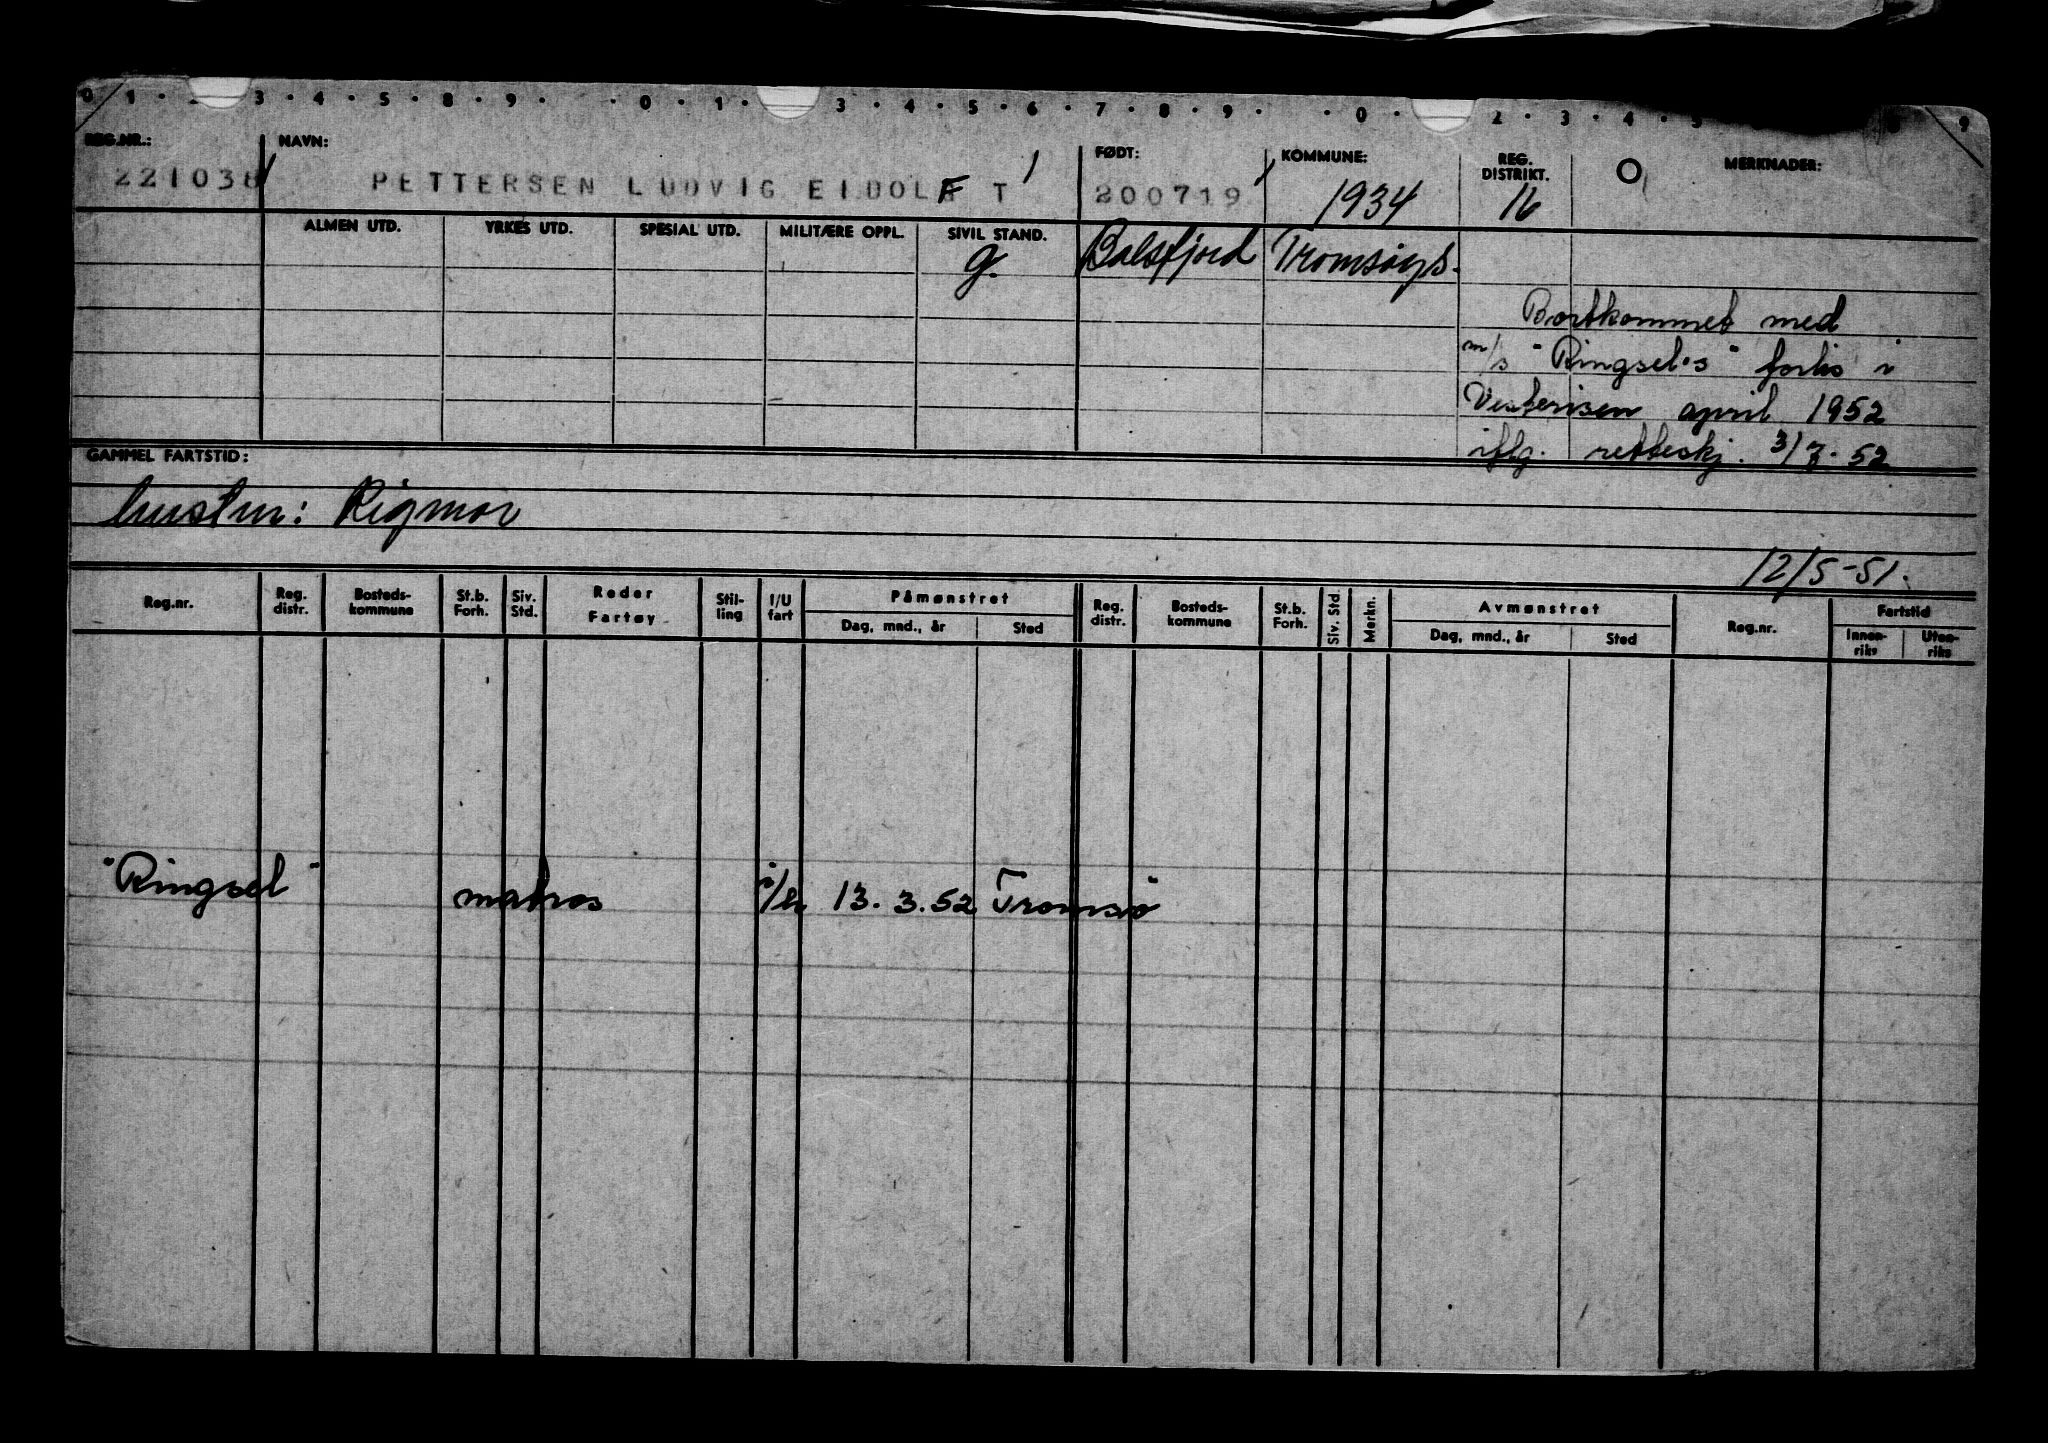 0 1 · 3 · 4 · 5 · 8 · 9 · · 0 · 1 · 3 · 4 · 5 · 6 · 7 · 8 · 9 · · 0 · 2 · 3 · 4 · 5 8 9
REG.NR.: NAVN: FØDT: KOMMUNE: REG. DISTRIKT. O MERKNADER:
221038 PETTERSEN LUDVIG EIDOLF T 200719 1934 16
ALMEN UTD. YRKES UTD. SPESIAL UTD. MILITÆRE OPPL. SIVIL STAND.
g. Balsfjord Tromsøys.
Bortkommet med
m/s "Ringsel's" forlis i
Vesterisen april 1952
iflg. retteskj. 3/7-52
GAMMEL FARTSTID:
hustru: Rigmor
12/5-51.
Reg.nr. Reg. distr. Bosteds-kommune St.b. Forh. Siv. Std. Reder Fartøy Stil-ling I/U fart Påmønstret Dag, mnd., år Sted Reg. distr. Bosteds-kommune St.b. Forh. Siv. Std. Merkn. Avmønstret Dag, mnd., år Sted Reg.nr. Fartstid Innen-riks Uten-riks
"Ringsel" matros 13.3.52 Tromsø